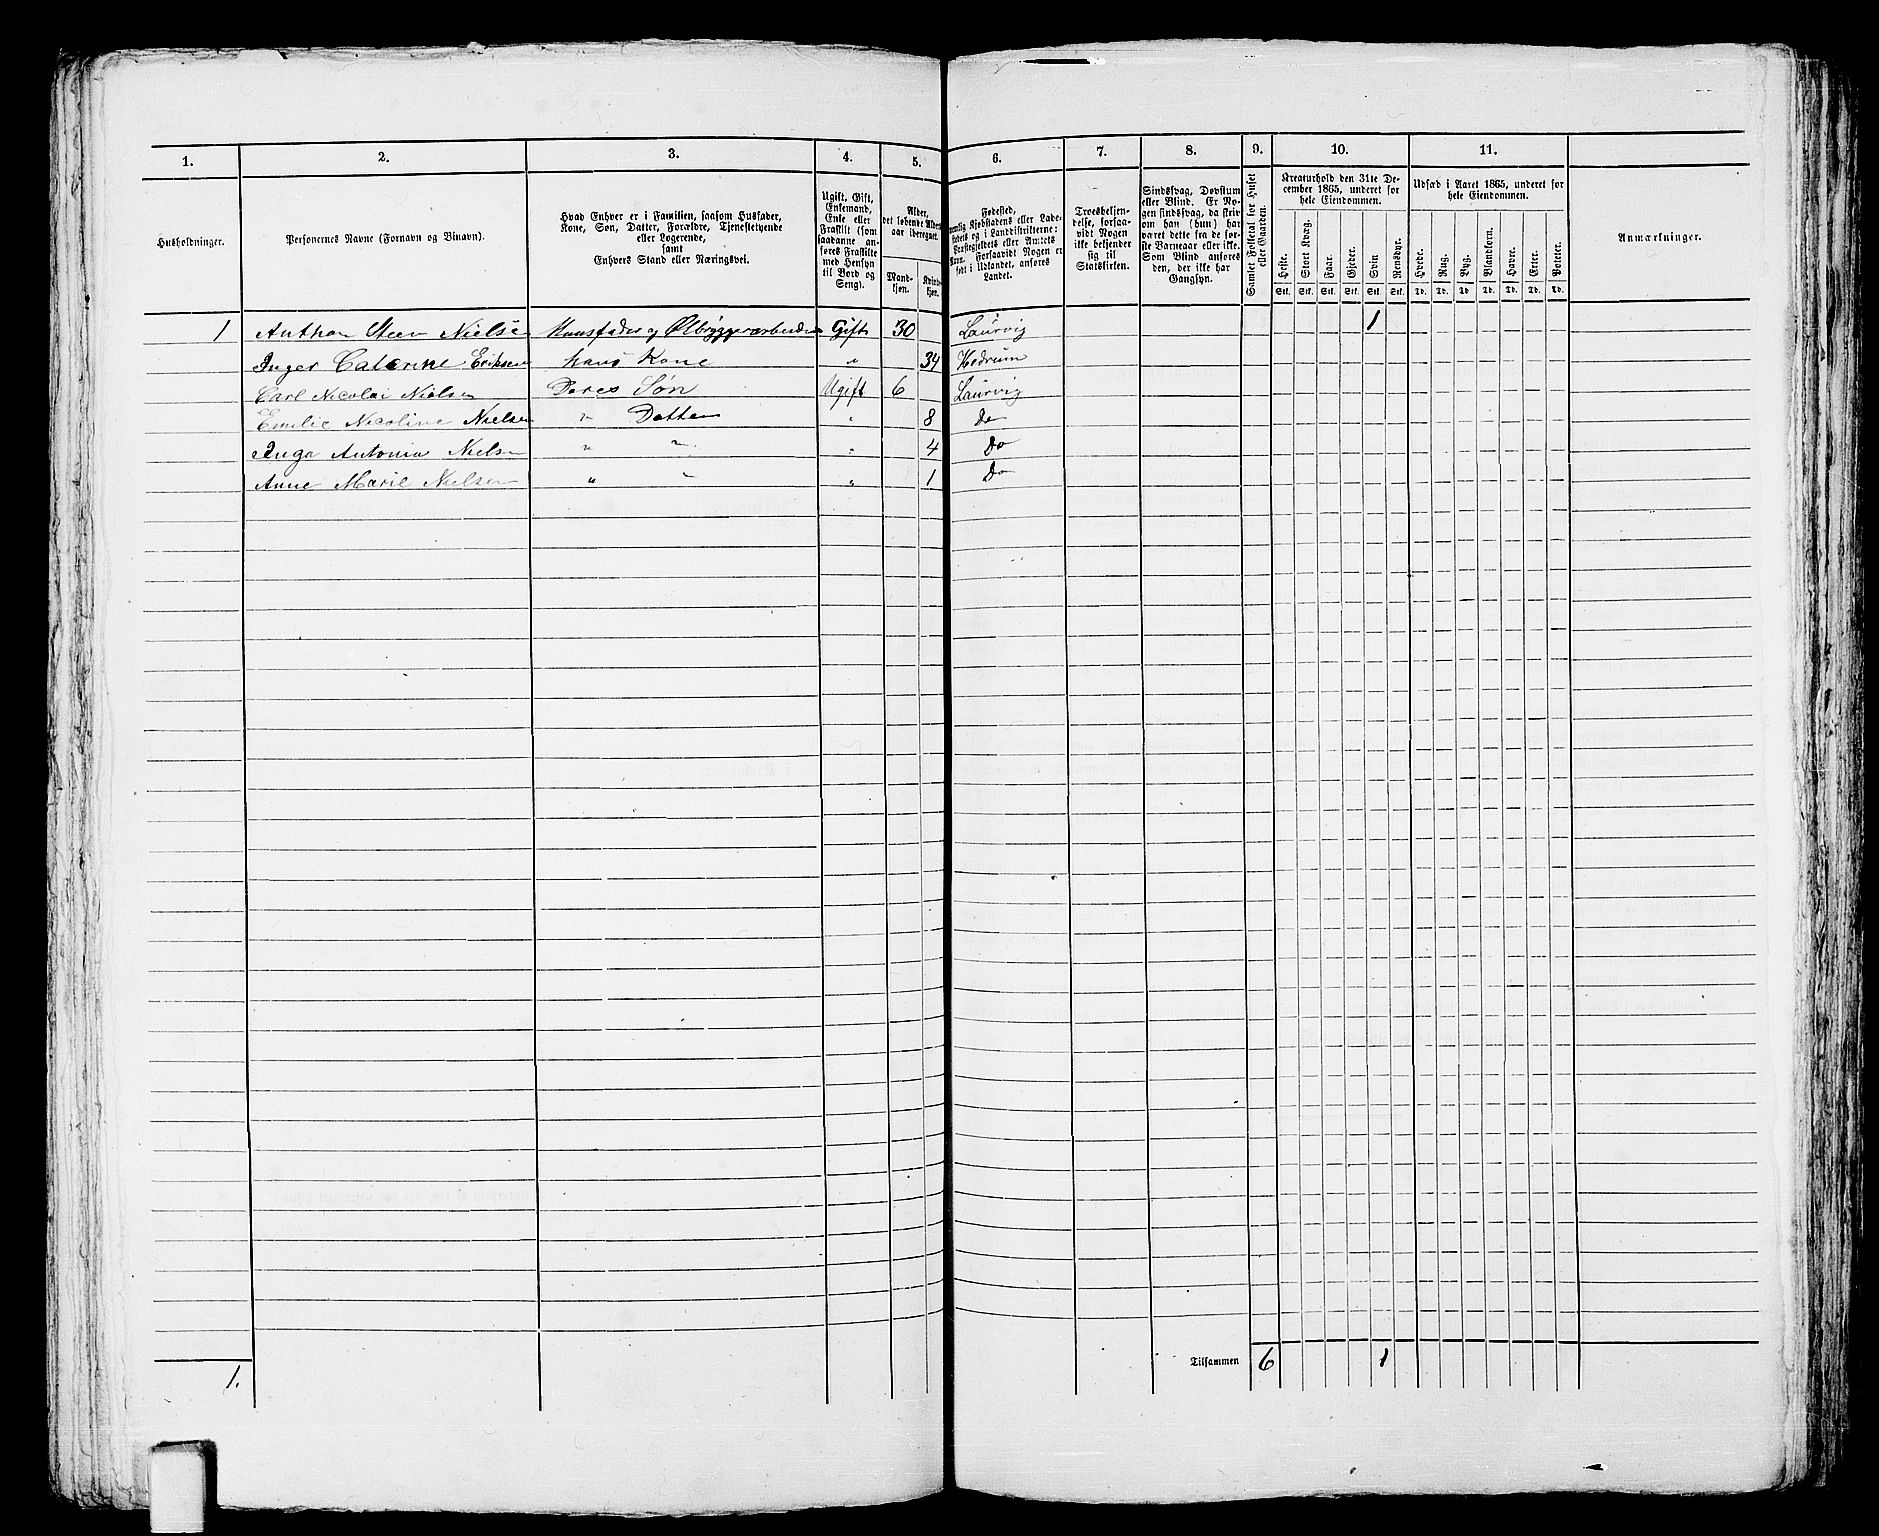 1. 2. 3. 4. 5. 6. 7. 8. 9. 10. 11.
Husholdninger.
Personernes Navne (Fornavn og Binavn).
Hvad Enhver er i Familien, saasom Husfader,
Kone, Søn, Datter, Forældre, Tjenestetyende
eller Logerende,
samt
Enhvers Stand eller Næringsvei.
Ugift, Gift,
Enkemand,
Enke eller
Fraskilt (som
saadanne an-
føres Fraskilte
med Hensyn
til Bord og
Seng).
Alder,
det løbende Alders-
aar iberegnet.
Mand-
kjøn.
Kvinde-
kjøn.
Fødested,
nemlig Kjøbstadens eller Lade-
stedets og i Landdistrikterne:
Præstegjældets eller Amtets
Navn. Forsaavidt Nogen er
født i Udlandet, anføres
Landet.
Troesbekjen-
delse, forsaa-
vidt Nogen
ikke bekjender
sig til
Statskirken.
Sindssvag, Døvstum
eller Blind. Er No-
gen sindssvag, da skriv
om han (hun) har
været dette fra de før-
ste Barneaar eller ikke.
Som Blind anføres
den, der ikke har
Gangsyn.
Gamlet Folketal for Huset
eller Gaarden.
Kreaturhold den 31te De-
cember 1865, underet for
hele Eiendommen.
Heste. Stort Kvæg. Faar. Gjeder. Svin Rensdyr.
Stk. Stk. Stk. Stk. Stk. Stk.
Udsæd i Aaret 1865, underet for
hele Eiendommen.
Hvede. Rug. Byg. Blandkorn. Havre. Erter. Poteter.
Td. Td. Td. Td. Td. Td. Td.
Anmærkninger.
1 Anthon Steen Nielse Huusfader og Ølbryggerarbeider Gift 30 Laurvig 1
Inger Catarine Eriksen Hans Kone " 34 Hedrum
Carl Nicolai Nielsen Deres Søn Ugift 6 Laurvig
Emilie Nicoline Nielsen " Datter " 8 Do
Inga Antonia Nielsen " " " 4 Do
Anne Marie Nielsen " " " 1 Do
1. Tilsammen 6 1